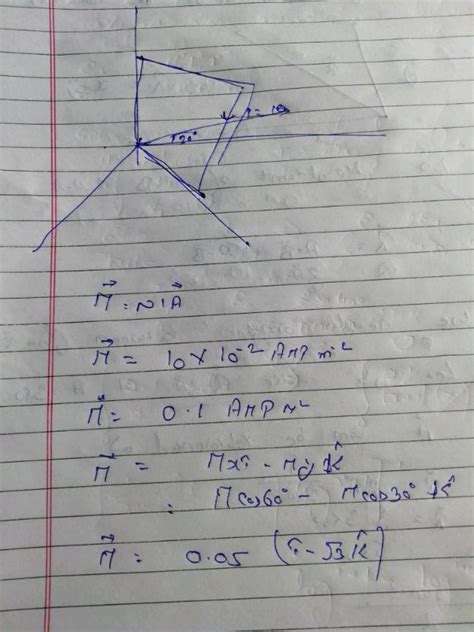 i = 10
30°
M⃗ = NIA⃗
M⃗ = 10 × 10⁻² AMP m²
M⃗ = 0.1 AMP m²
M⃗ = Mxî - My K̂
: M cos60° - M cos30° K̂
M⃗ = 0.05 (î - √3 K̂)